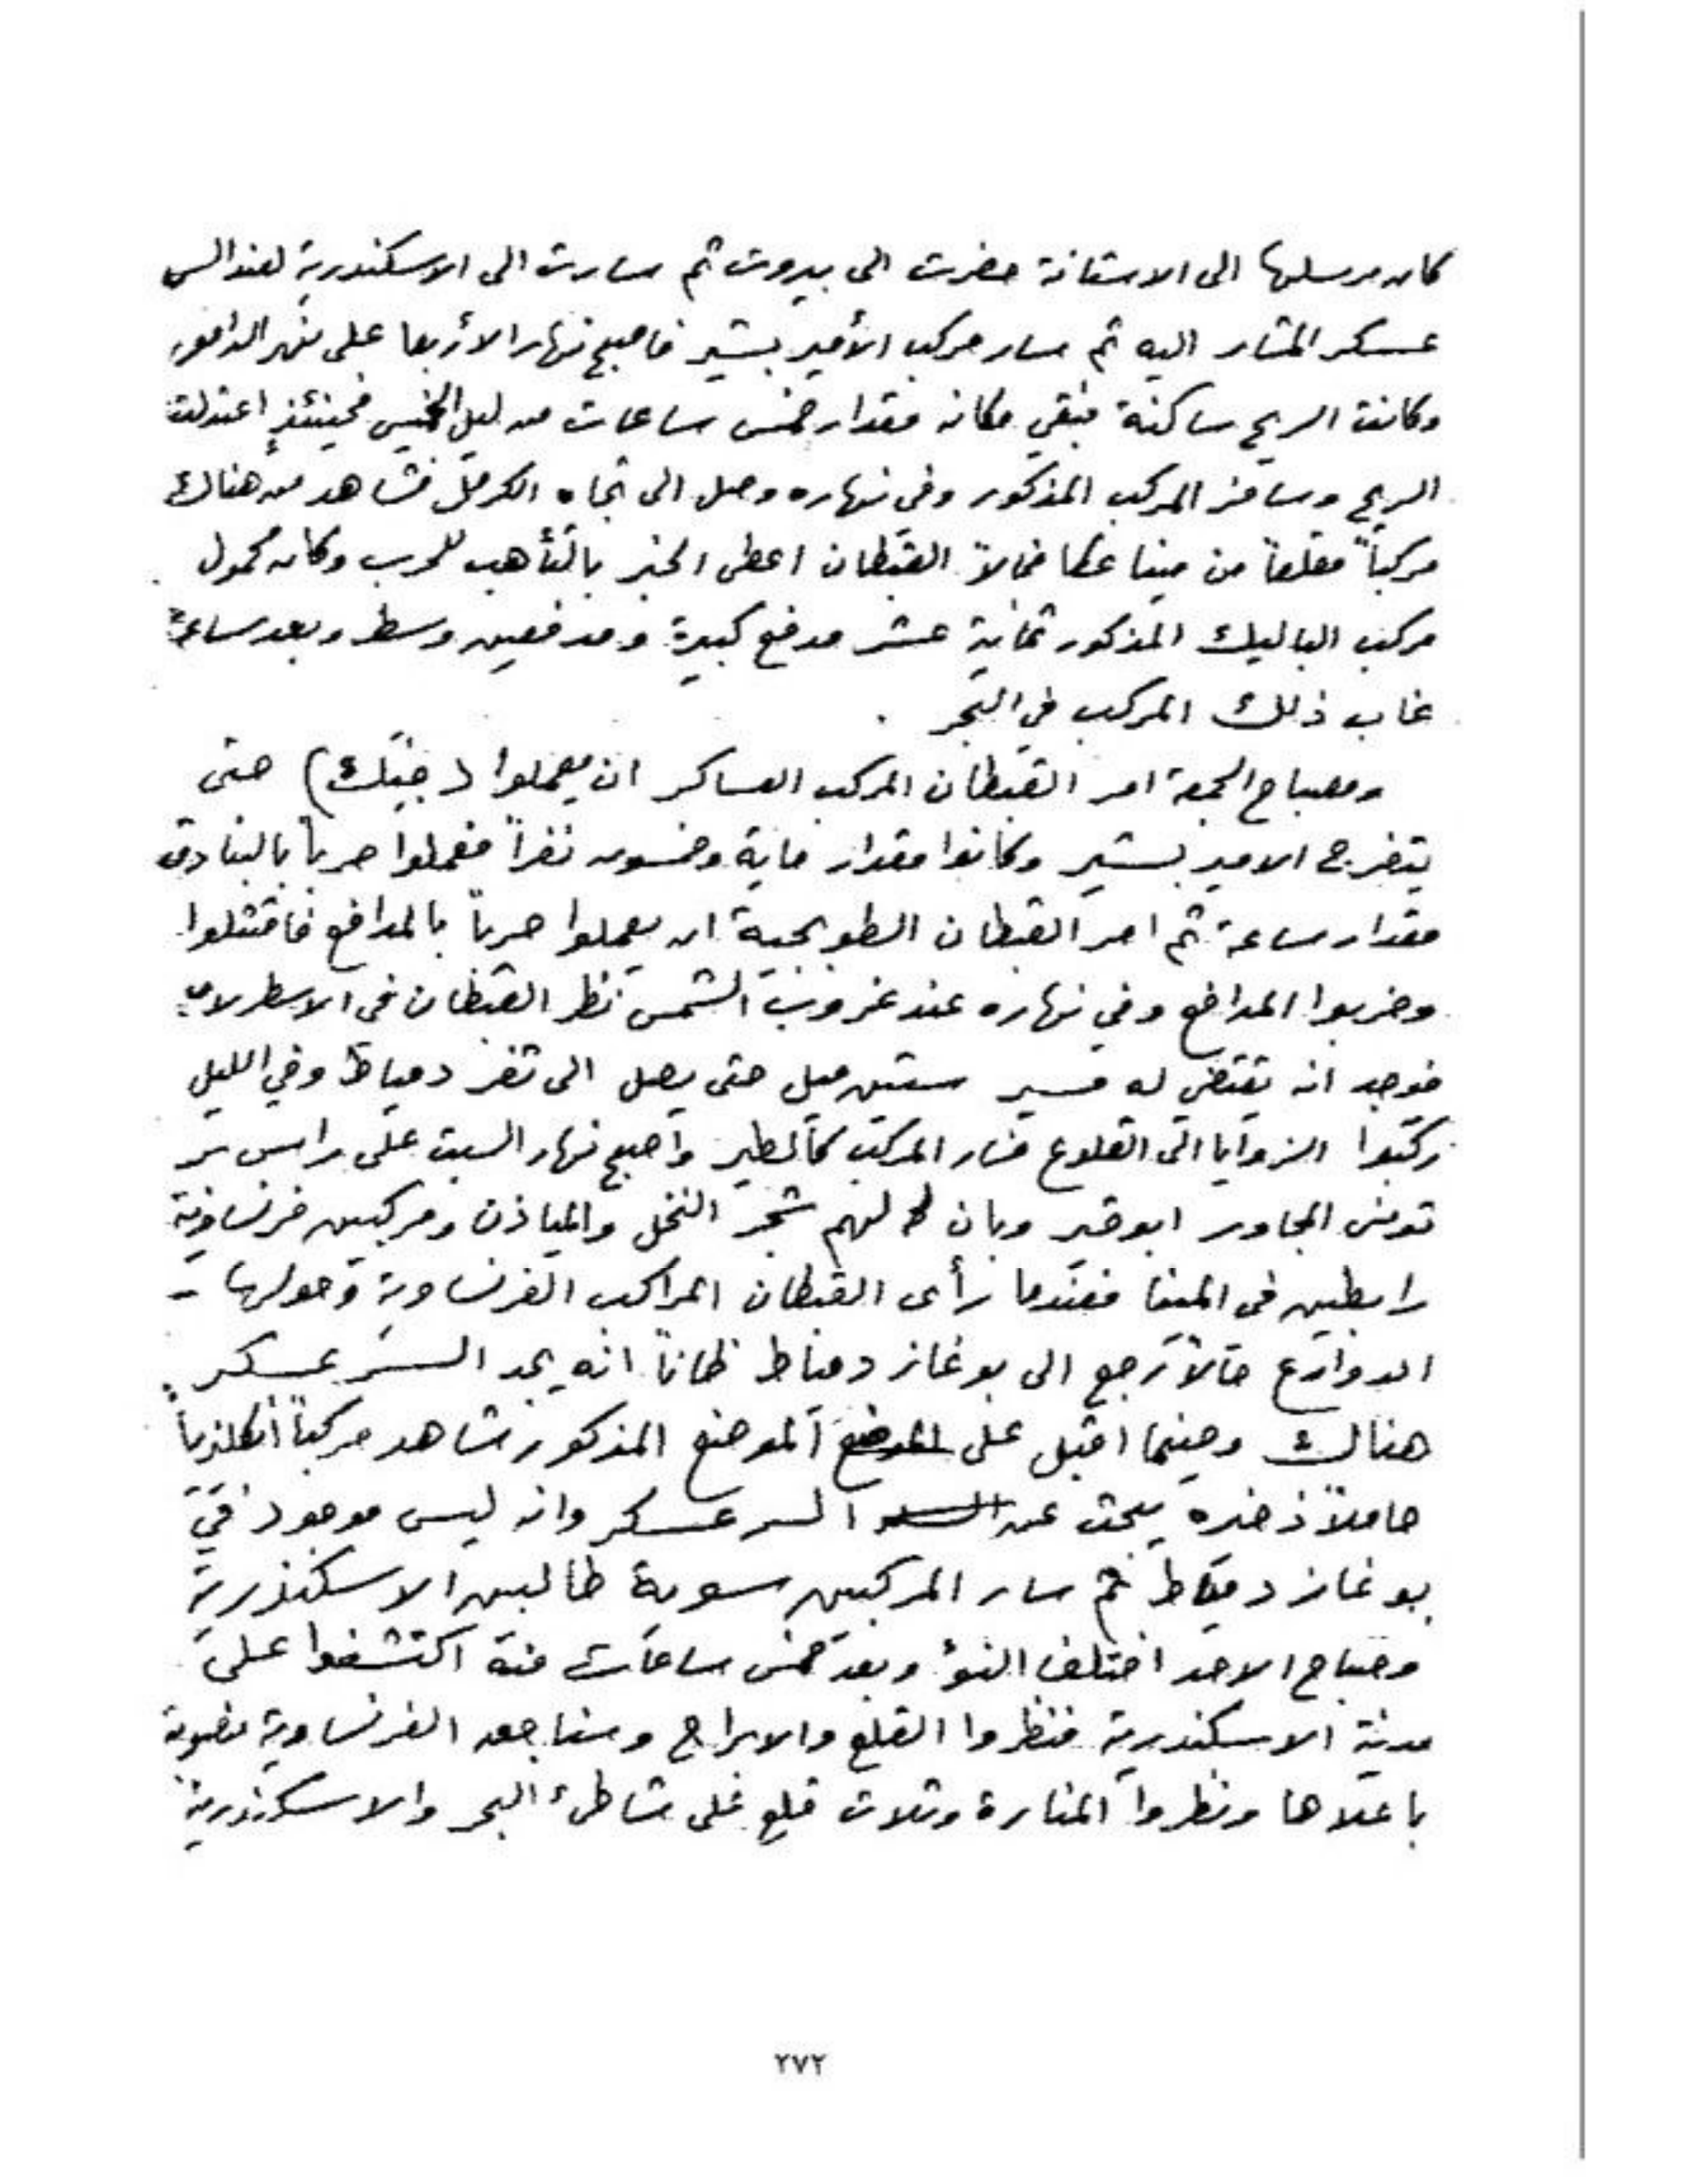 كان مرسلها الى الاستانة حضرت الى بيروت ثم سارت الى الاسكندرية لعند السر
عسكر المشار اليه ثم سار مركب الأمير بشير فاصبح نهار الأربعا على نهر الدامور
وكانت الريح ساكنة فبقي مكانه مقدار خمس ساعات من ليل الخميس فحينئذٍ اعتدلت
الريح وسافر المركب المذكور وفي نهاره وصل الى تجاه الكرمل فشاهد من هناك
مركباً مقلعاً من مينا عكا فحالاً القبطان اعطى الخبر بالتأهب للحرب وكان محمول
مركب الباليك المذكور ثمانية عشر مدفع كبيرة ومدفعين وسط وبعد ساعة
غاب ذلك المركب في البحر .
وصباح الجمعة امر القبطان المركب العساكر ان يعملوا (جنك) حتى
يتفرج الامير بشير وكانوا مقدار ماية وخمسون نفراً فعملوا حرباً بالبنادق
مقدار ساعة ثم امر القبطان الطوبجية ان يعملوا حرباً بالمدافع فاقتتلوا
وضربوا المدافع وفي نهاره عند غروب الشمس نظر القبطان في الاسطرلاب
فوجد انه يقتضي له مسير ستين ميل حتى يصل الى ثغر دمياط وفي الليل
ركبوا الزوايا الى القلوع فسار المركب كالطير واصبح نهار السبت على راس بر
تونس المجاور ابوقير وبان لهم شجر النخل والمياذن ومركبين فرنساوية
رابطين في المينا فعندما رأى القبطان المراكب الفرنساوية وحولها -
الدوارع حالاً رجع الى بوغاز دمياط ظاناً انه يجد السر عسكر
هناك وحينما اقبل على الموضع الموضع المذكور شاهد مركباً انكلزياً
حاملاً ذخيره يبحث عن السر عسكر وانه ليس موجود في
بوغاز دمياط ثم سار المركبين سوية طالبين الاسكندرية
وصباح الاحد اختلف النوٌ وبعد خمس ساعات منه اكتشفوا على
مدينة الاسكندرية فنظروا القلع والابراج وسناجق الفرنساوية منصوبة
باعلاها ونظروا المنارة وثلاث قلع على شاطئ البحر والاسكندرية
٢٧٢